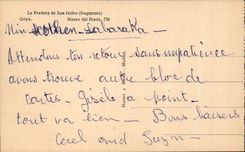 La Pradera de San Isidro (fragmento)
Goya. Museo del Prado, 750
Attendons ton retour sans impatience
avons trouvé autre bloc de
cartes - Gisèle a point -
tout va bien - Bons baisers
Cecil and Suzon -
Hauser y Menet. - Madrid